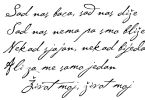 Sad nas boca, sad nas dije
Sad nas nema pa smo blije
Nekad sjajan, nekad bijeda
Ali za me samo jedan
Život moj, život moj